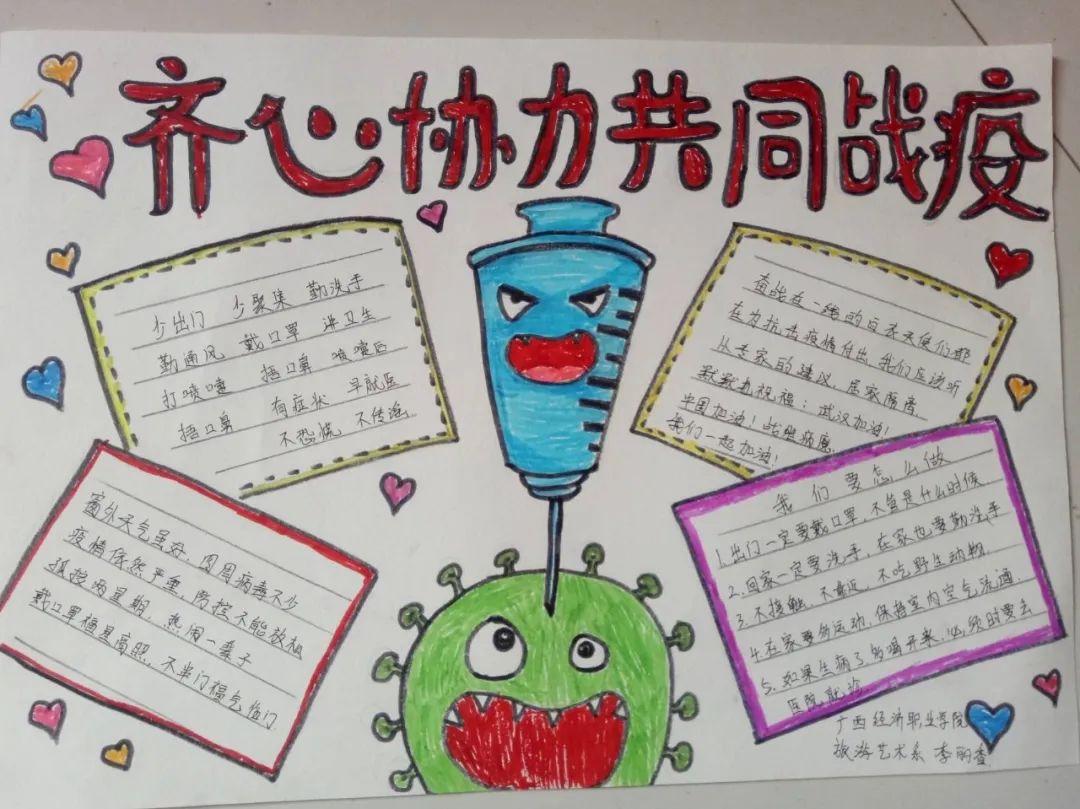 齐心协力共同战疫
少出门 少聚集 勤洗手
勤通风 戴口罩 讲卫生
打喷嚏 捂口鼻 喷嚏后
捂口鼻 有症状 早就医
不恐慌 不传谣.
奋战在一线的白衣天使们都
在为抗击疫情付出,我们应该听
从专家的建议,居家隔离
默默地祝福:武汉加油!
中国加油!战胜病魔
我们一起加油!
窗外天气虽好,周围病毒不少
疫情依然严重,防控不能放松
孤独两星期,热闹一辈子
戴口罩福星高照,不串门福气临门
我们要怎么做
1.出门一定要戴口罩,不管是什么时候
2.回家一定要洗手,在家也要勤洗手
3.不接触,不靠近,不吃野生动物.
4.在家要多运动,保持室内空气流通.
5.如果生病了多喝开水,必须时要去
医院就诊.
广西经济职业学院
旅游艺术系 李丽